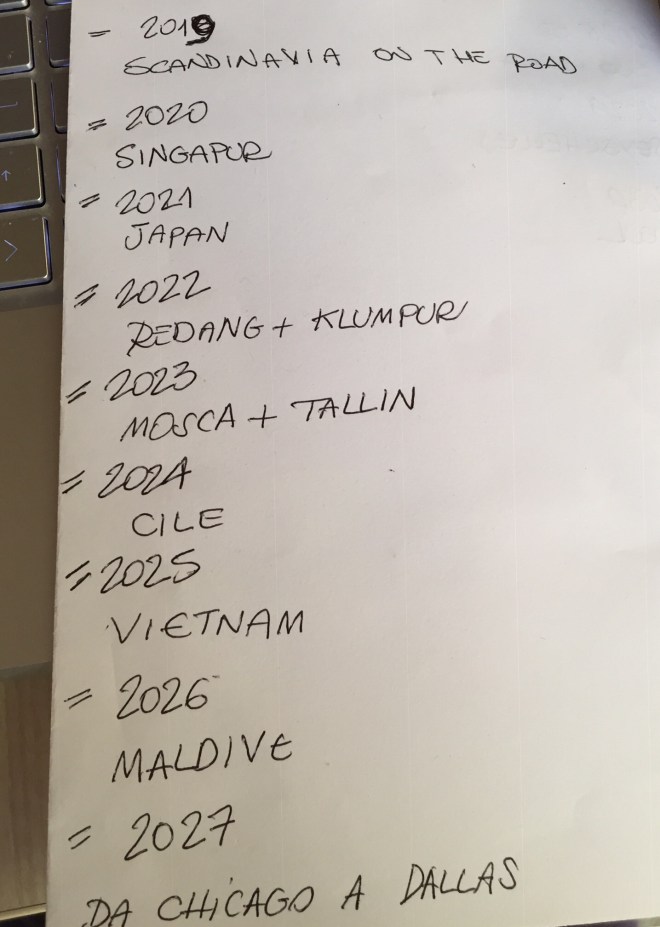 = 2019
SCANDINAVIA ON THE ROAD
= 2020
SINGAPUR
= 2021
JAPAN
= 2022
REDANG + KLUMPUR
= 2023
MOSCA + TALLIN
= 2024
CILE
= 2025
VIETNAM
= 2026
MALDIVE
= 2027
DA CHICAGO A DALLAS